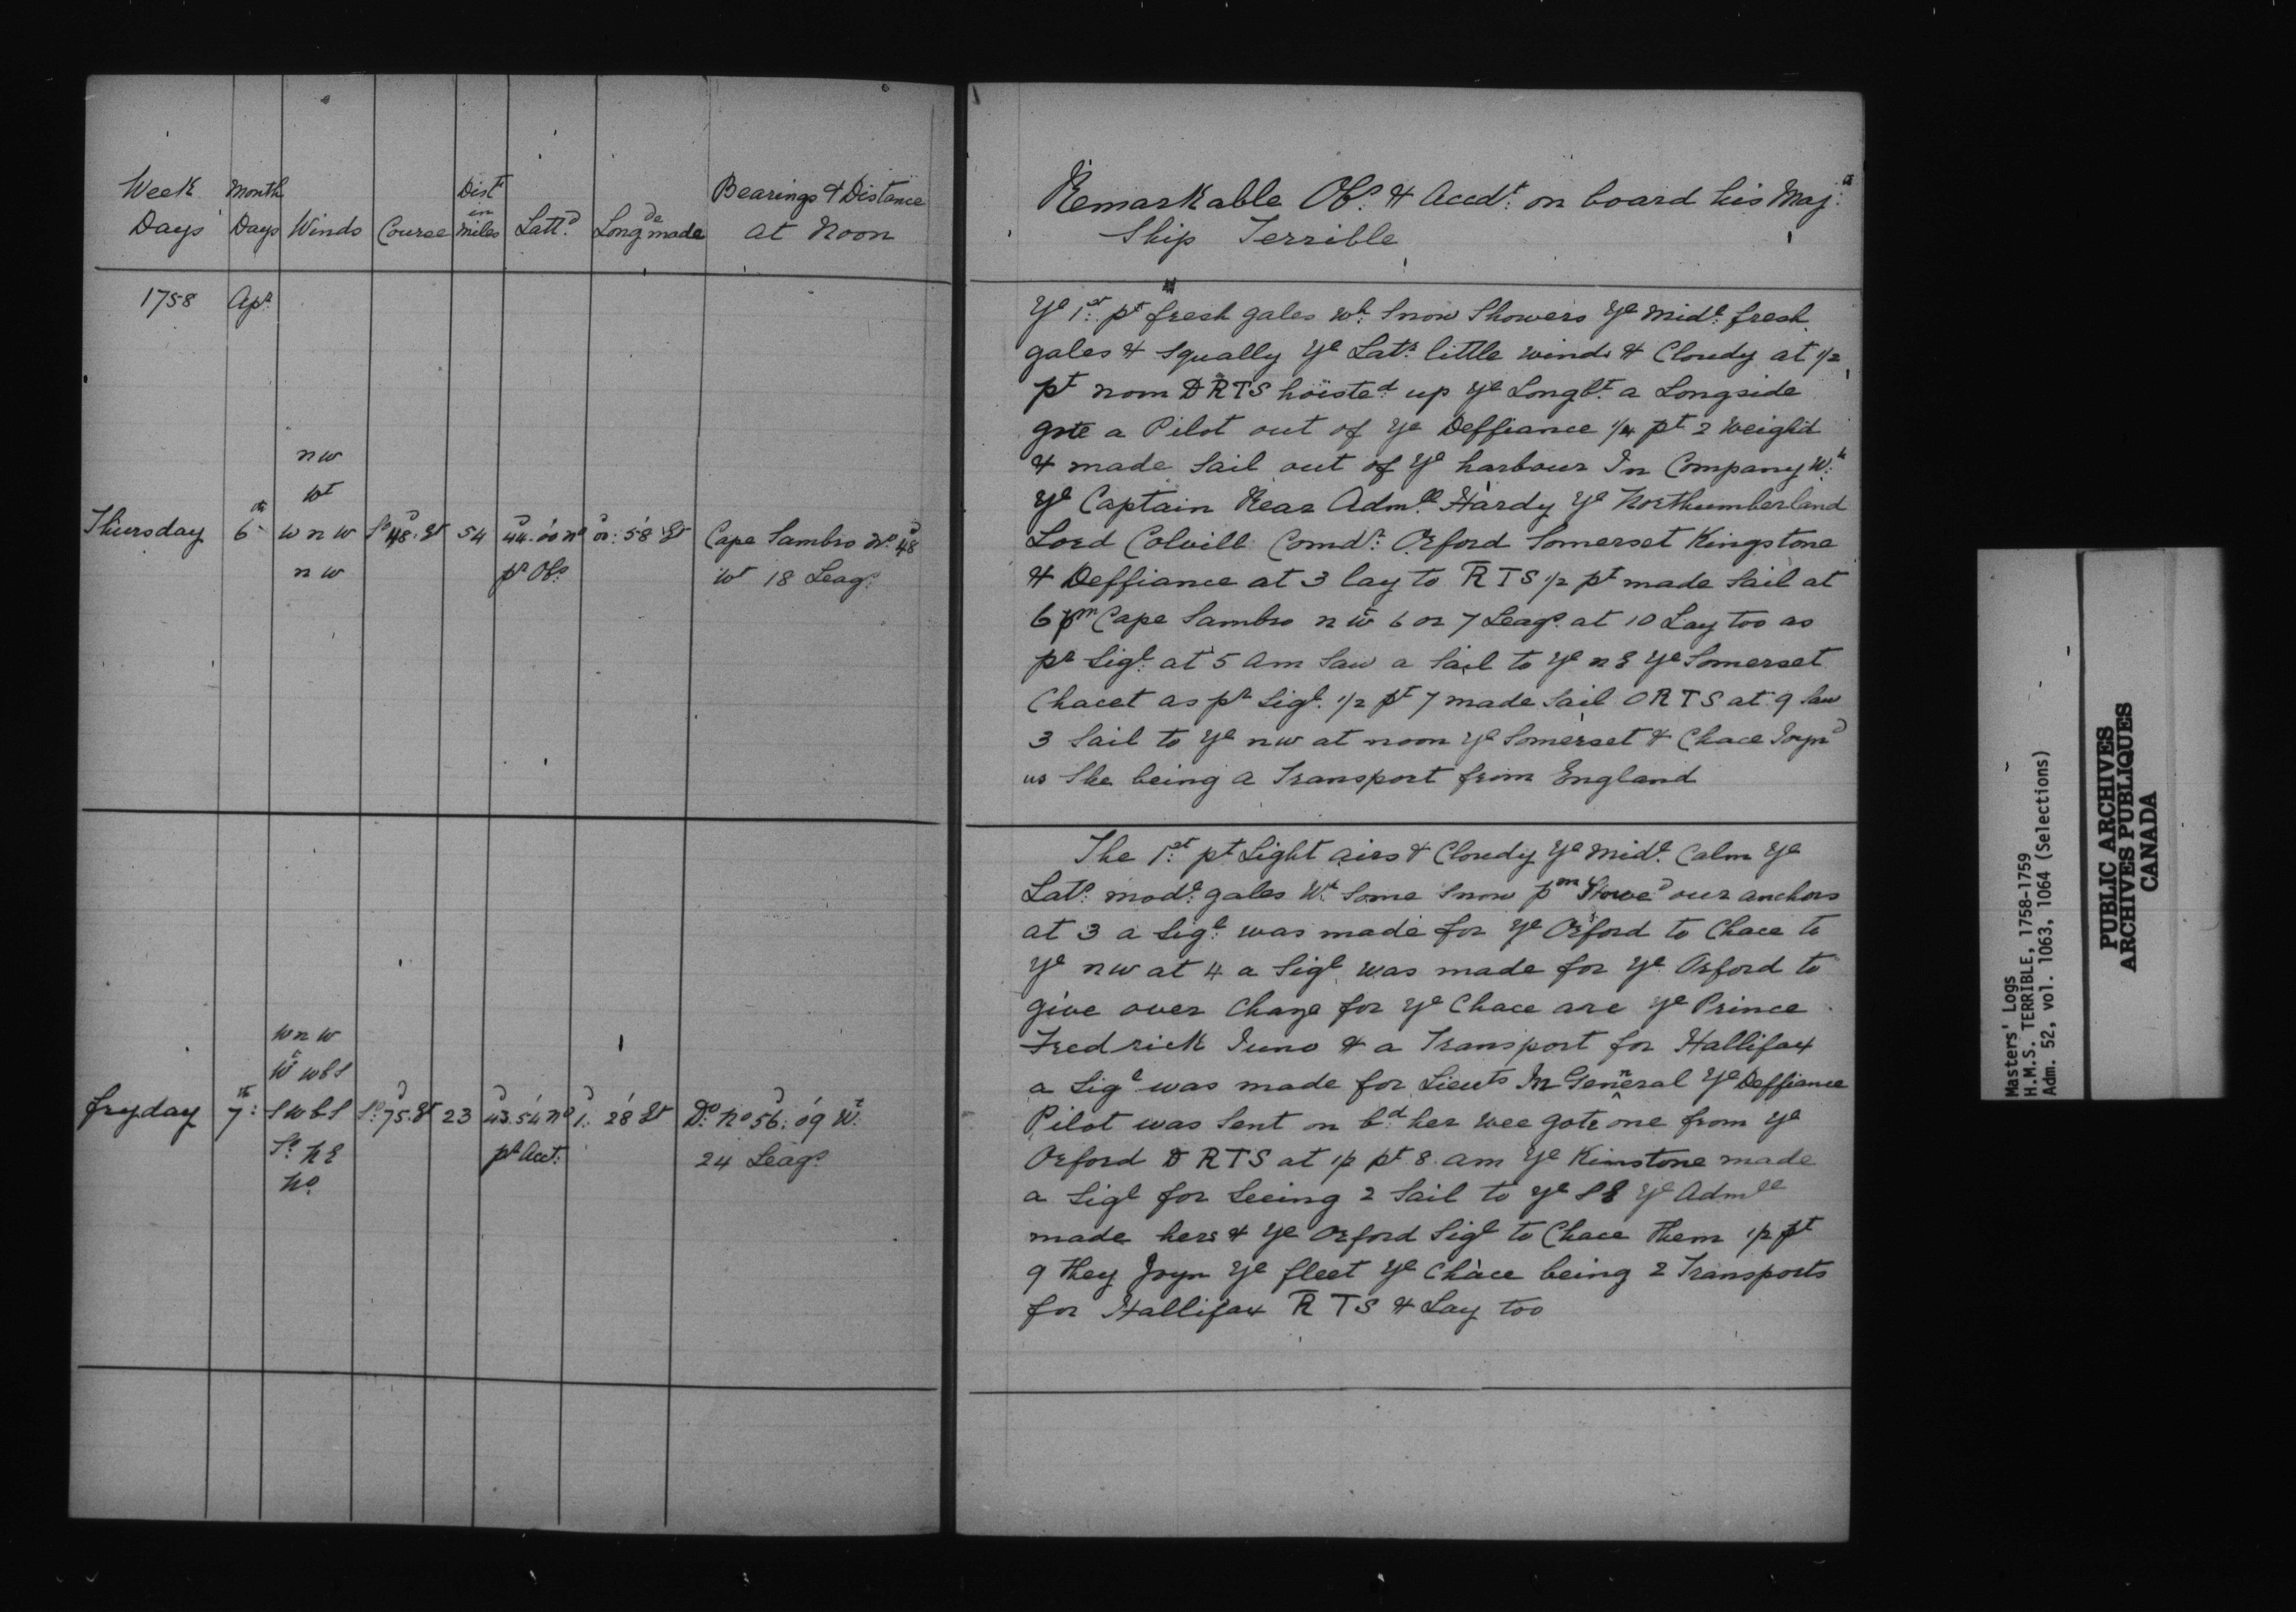 Week Days
Month Days
Winds
Course
Dist in miles
Latt.d
Long.de made
Bearings & Distance at Noon
1758 Apr
n w
wt
Thursday 6th w n w So 48 Et 54 44.00 no 01:58 Et Cape Sambro No 48
n w pr Obs wt 18 Leags
w n w
W wbS
fryday 7th: S w b S So 75 Et 23 43.54 no 1. 28 Et Do No 56:09 Wt
So N E pr Acct: 24 Leags
No
Remarkable Obs. & Accdt: on board his Maj.s
Ship Terrible
Ye 1st: pt fresh gales wh: Snow Showers Ye Midl: fresh
gales & Squally Ye Latr little winds & Cloudy at 1/2
pt noon D RTS hoisted up Ye Longbt. a Longside
gote a Pilot out of Ye Deffiance 1/4 pt 2 Weigh'd
& made Sail out of Ye harbour In Company Wh:
Ye Captain Rear Admll Hardy Ye Northumberland
Lord Colvill Comdr: Orford Somerset Kingstone
& Deffiance at 3 lay to R T S 1/2 pt made Sail at
6 pm Cape Sambro n w 6 or 7 Leags. at 10 Lay too as
pr Sigl: at 5 am Saw a Sail to Ye n E Ye Somerset
Chacet as pr Sigl. 1/2 pt 7 made Sail O R T S at 9 Saw
3 Sail to Ye nw at noon Ye Somerset & Chace Joynd
us She being a Transport from England
The 1st: pt Light airs & Cloudy Ye Midl. Calm Ye
Latr. modt: gales Wh. Some Snow pm Stowed our anchors
at 3 a Sigl: was made for Ye Orford to Chace to
Ye nw at 4 a Sigl was made for Ye Orford to
give over for Ye Chace are Ye Prince
Fredrick Juno & a Transport for Hallifax
a Sigl was made for Lieuts In General Ye Deffiance
Pilot was Sent on bd her wee gote one from Ye
Orford D RTS at 1/2 pt 8 am Ye Kinstone made
a Sigl for Seeing 2 Sail to Ye S E Ye Admll
made hers & Ye Orford Sigl to Chace Them 1/2 pt
9 They Joyn Ye fleet Ye Chace being 2 Transports
for Hallifax R T S & Lay too
Masters' Logs
H.M.S. TERRIBLE, 1758-1759
Adm. 52, vol. 1063, 1064 (Selections)
PUBLIC ARCHIVES
ARCHIVES PUBLIQUES
CANADA